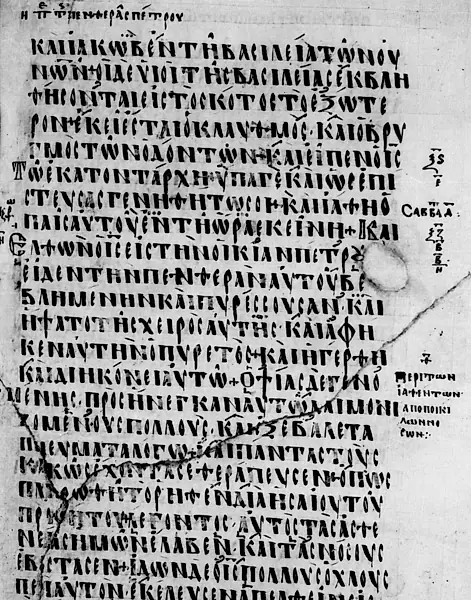 Η ΠΤ ΠΕΝΘΕΡΑΣ ΠΕΤΡΟΥ
ΚΑΙΙΑΚΩΒΕΝΤΗΒΑΣΙΛΕΙΑΤΩΝΟΥ
ΝΩΝ+ΟΙΔΕΥΙΟΙΤΗΣΒΑΣΙΛΕΙΑΣΕΚΒΛΗ
ΘΗΣΟΝΤΑΙΕΙΣΤΟΣΚΟΤΟΣΤΟΕΞΩΤΕ
ΡΟΝΕΚΕΙΕΣΤΑΙΟΚΛΑΥΘΜΟΣ·ΚΑΙΟΒΡΥ
ΓΜΟΣΤΩΝΟΔΟΝΤΩΝ+ΚΑΙΕΙΠΕΝΟΙΣ
ΤΩΕΚΑΤΟΝΤΑΡΧΗ·ΥΠΑΓΕΚΑΙΩΣΕΠΙ
ΣΤΕΥΣΑΣΓΕΝΗΘΗΤΩΣΟΙ+ΚΑΙΙΑΘΗΟ
ΠΑΙΣΑΥΤΟΥΕΝΤΗΩΡΑΕΚΕΙΝΗ+ΚΑΙ
ΣΑΒΒΑ
ΕΛΘΩΝΟΙΣΕΙΣΤΗΝΟΙΚΙΑΝΠΕΤΡΟΥ
ΕΙΔΕΝΤΗΝΠΕΝΘΕΡΑΝΑΥΤΟΥΒΕ
ΒΛΗΜΕΝΗΝΚΑΙΠΥΡΕΣΣΟΥΣΑΝ·ΚΑΙ
ΗΨΑΤΟΤΗΣΧΕΙΡΟΣΑΥΤΗΣΚΑΙΑΦΗ
ΚΕΝΑΥΤΗΝΟΠΥΡΕΤΟΣ·ΚΑΙΗΓΕΡΘΗ
ΚΑΙΔΙΗΚΟΝΕΙΑΥΤΩ+ΟΨΙΑΣΔΕΓΕΝΟ
ΜΕΝΗΣ·ΠΡΟΣΗΝΕΓΚΑΝΑΥΤΩΔΑΙΜΟΝΙ
ΖΟΜΕΝΟΥΣΠΟΛΛΟΥΣ·ΚΑΙΕΞΕΒΑΛΕΤΑ
ΠΝΕΥΜΑΤΑΛΟΓΩ·ΚΑΙΠΑΝΤΑΣΤΟΥΣ
ΚΑΚΩΣΕΧΟΝΤΑΣΕΘΕΡΑΠΕΥΣΕΝ·ΟΠΩΣ
ΠΛΗΡΩΘΗΤΟΡΗΘΕΝΔΙΑΗΣΑΙΟΥΤΟΥ
ΠΡΟΦΗΤΟΥΛΕΓΟΝΤΟΣ·ΑΥΤΟΣΤΑΣΑΣΘΕ
ΝΕΙΑΣΗΜΩΝΕΛΑΒΕΝ·ΚΑΙΤΑΣΝΟΣΟΥΣ
ΕΒΑΣΤΑΣΕΝ+ΙΔΩΝΔΕΟΙΣΠΟΛΛΟΥΣΟΧΛΟΥΣ
ΠΕΡΙΑΥΤΟΝΕΚΕΛΕΥΣΕΝΑΠΕΛΘΕΙΝΕΙΣ
ΠΕΡΙΤΩΝ
ΙΑΘΕΝΤΩΝ
ΑΠΟΠΟΙΚΙ
ΛΩΝΝΟ
ΣΩΝ: